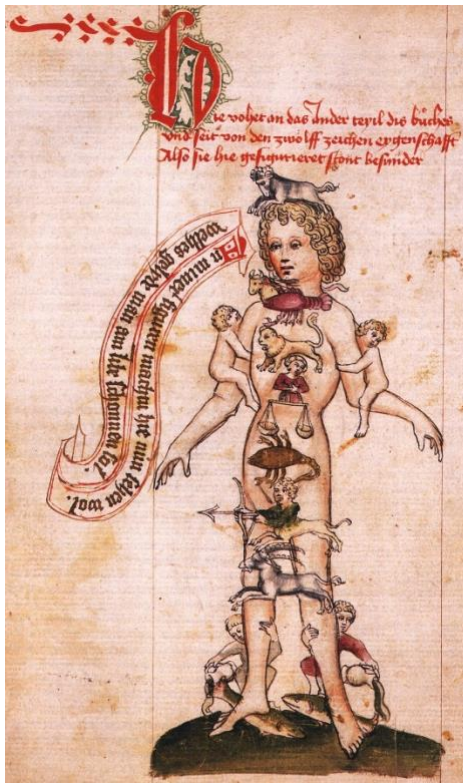 Hie vohet an das Ander teyil dis bůches
vnd seit von den zwölff zeichen eygenschafft
Also sie hie gefigurieret stont besunder
miner figuren machtu hie min sehen wol.
Welhes man am schonnen sol.